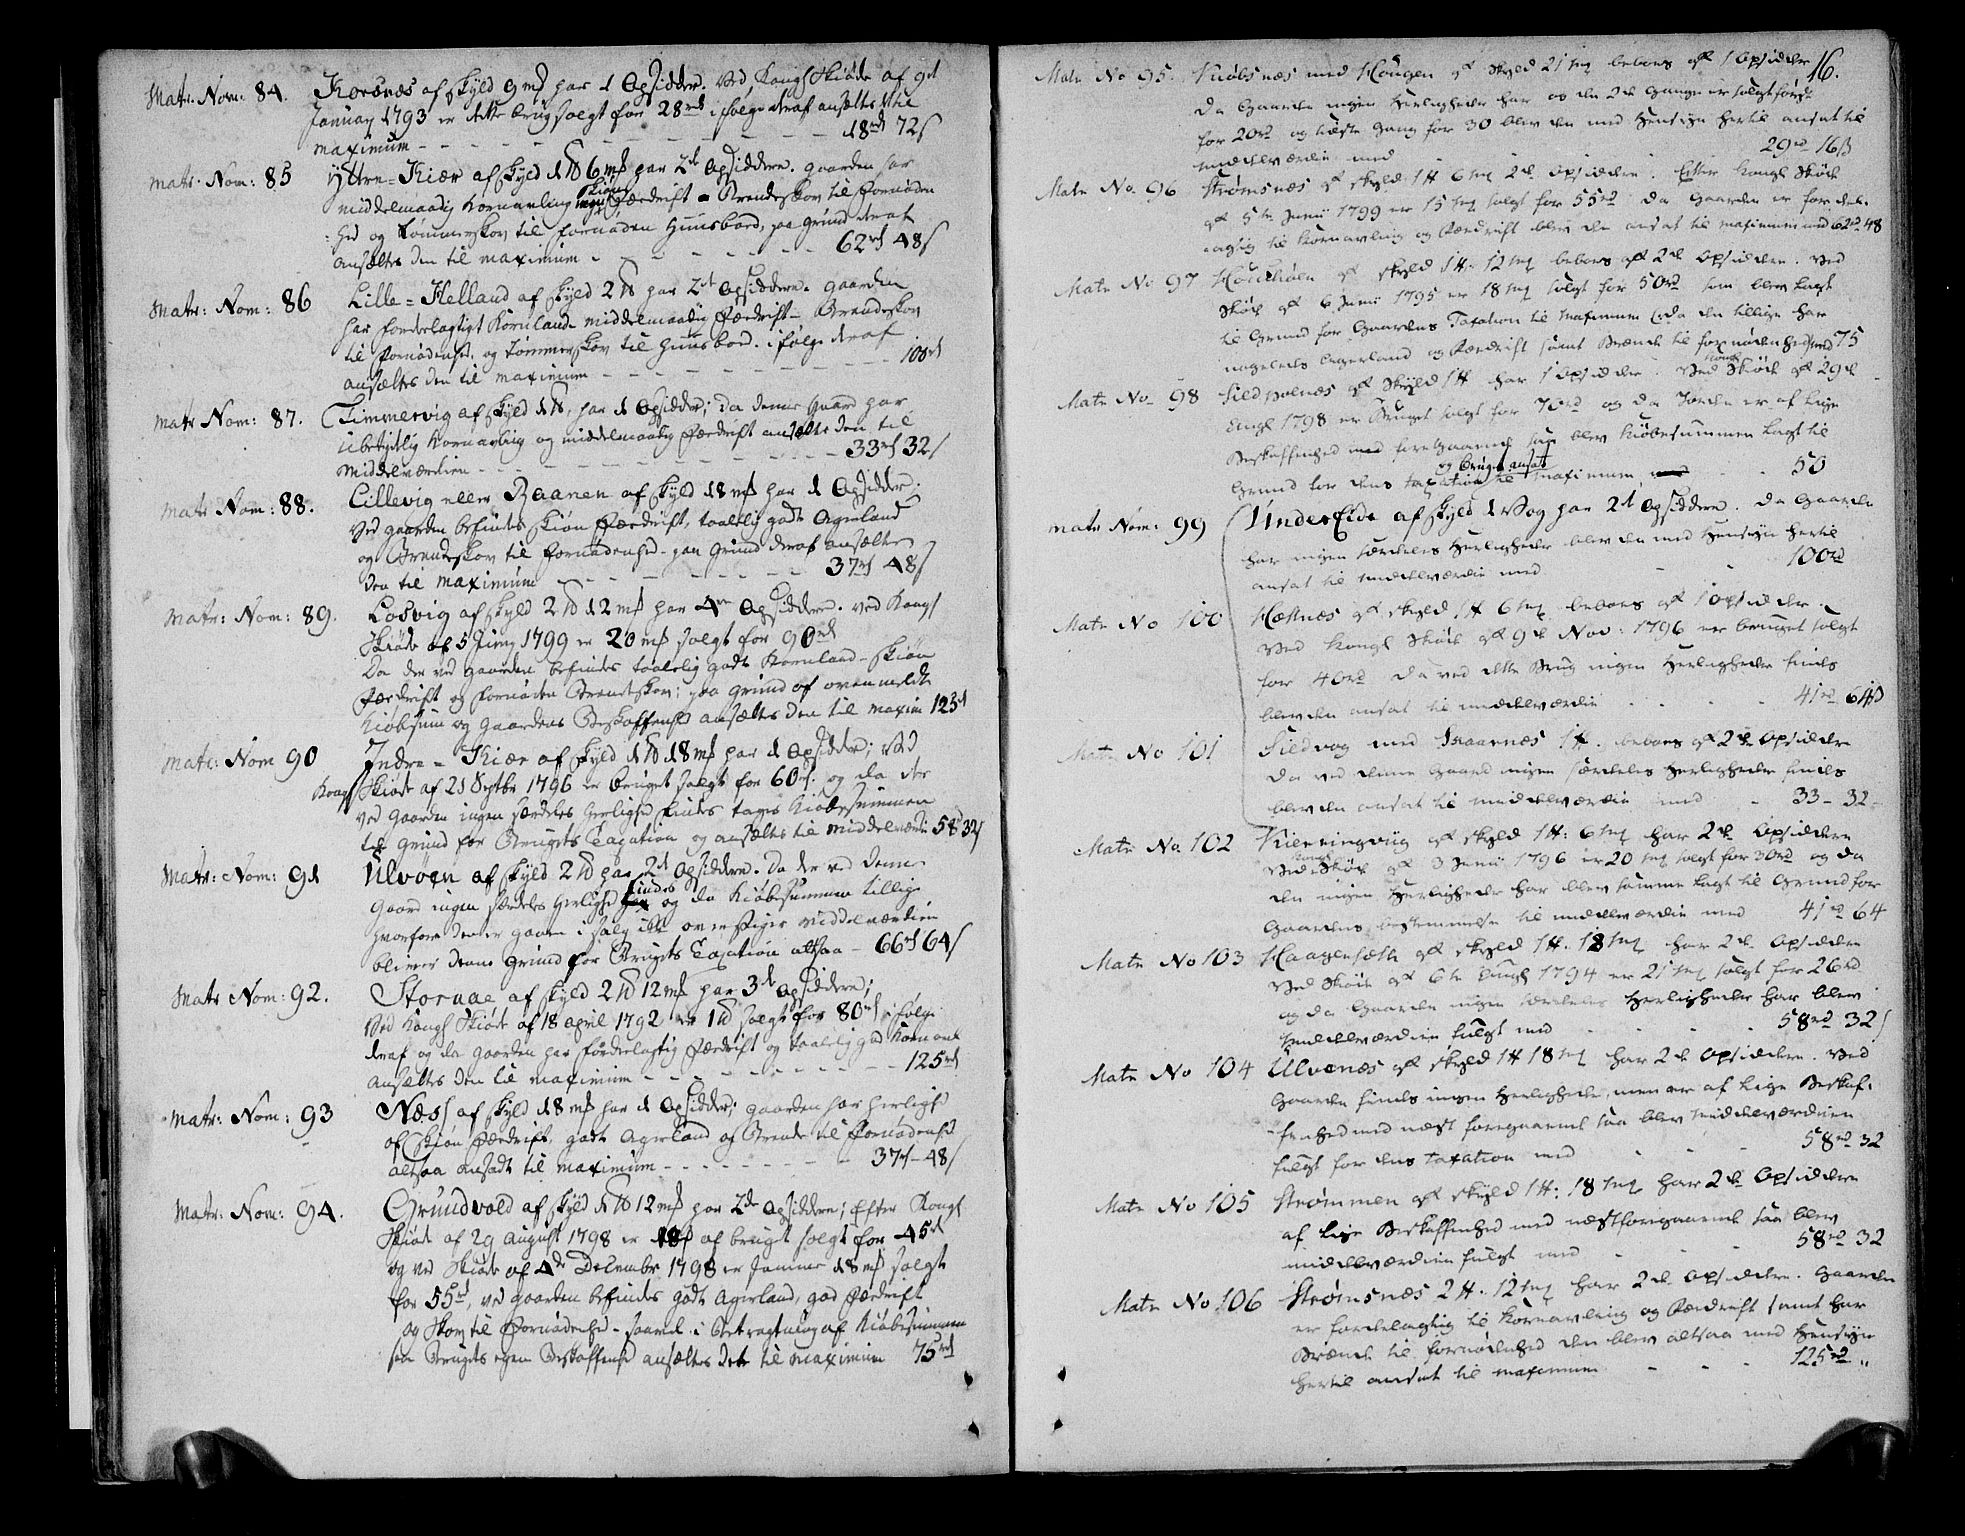 Matr: Nom: 84. Korsnæs af Skyld 9 mß har 1 Opsidder. Ved Kongl Skiøde af 9d
January 1793 er dette brug solgt for 28 rd i følge deraf ansættes det til
maximum - - - 18 rd 72 ß
Matr. Nom: 85 Yttre=Kiær af Skyld 1 ℔ 6 mß har 2de Opsiddere. gaarden har
skiøn
middelmaadig Kornavling Fædrift - Brendeskov til Fornøden
hed og Tømmerskov til fornøden Huusbord, paa Grund deraf
ansættes den til maximum - - - 62 rd 48 ß
Matr: Nom: 86 Lille=Helland af Skyld 2 ℔ har 2de Opsiddere. gaarden
har fordelagtigt Kornland middelmaadig Fædrift - Brendeskov
til Fornødenhed og Tømmerskov til Huusbord. i følge deraf
ansættes den til maximum - - - 100 rd
Matr Nom: 87. Timmervig af Skyld 1 ℔, har 1 Opsidder; da denne Gaard har
ubetydelig Kornavling og middelmaadig Fædrift ansættes den til
Middelværdien - - - 33 rd 32 ß
Matr Nom: 88. Lillevig eller Raanen af Skyld 18 mß har 1 Opsidder.
Ved gaarden befindes skiøn Fædrift, taalelig godt Agerland
og Brendeskov til Fornødenhed - paa Grund deraf ansættes
den til maximum - - - 37 rd 48 ß
Matr: Nom: 89. Losvig af Skyld 2 ℔ 12 mß har 4re Opsiddere. Ved Kongl
Skiøde af 5 Juny 1799 er 20 mß solgt for 90 rd
Da der ved gaarden befindes taalelig godt Kornland - skiøn
Fædrift og fornøden Brendeskov; paa Grund af ovenmeldte
Kiøbsum og gaardens Beskaffenhed ansættes den til maxim 125 rd
Matr: Nom 90 Indre=Kiær af Skyld 1 ℔ 18 mß har 1 Opsidder; Ved
Kongl Skiøde af 21 Septbr 1796 er bruget solgt for 60 rd. og da der
ved gaarden ingen særdeles herlighed findes tages Kiøbesummen
til Grund for Brugets Taxation og ansættes til Middelværdie 58 rd 32 ß
Matr: Nom: 91 Ulvøen af Skyld 2 ℔ har 2de Opsiddere. Da der ved denne
findes
Gaard ingen særdeles herlighed og da Kiøbesummen tillige
hvorfore denne gaard i salg ikke overstiger Middelværdien
bliver denne Grund for Brugets Taxation altsaa - 66 rd 64 ß
Matr Nom: 92. Storaae af Skyld 2 ℔ 12 mß har 3de Opsiddere;
Ved Kongl Skiøde af 18 april 1792 er 1 ℔ solgt for 80 rd, i følge
deraf og da gaarden har fordelagtig Fædrift og taalelig god Kornavl
ansættes den til maximum - - - 125 rd
Matr: Nom: 93 Næss af Skyld 18 mß har 1 Opsidder; gaarden har herlighed
af Skiøn Fædrift, godt Agerland og Brende til Fornødenhed
altsaa ansadt til maximum - - - 37 rd - 48 ß
Matr: Nom: 94. Grundvold af Skyld 1 ℔ 12 mß har 2de Opsiddere; Efter Kongl
Skiøde af 29 august 1798 er 18 ß af bruget solgt for 45 rd
og ved Skiøde af 4de Decembr 1798 er samme 18 mß solgt
for 55 rd, ved gaarden befindes godt Agerland, god Fædrift
og Skov til Fornødenhed - saavel i Betragtning af Kiøbesummen
som Brugets egen Beskaffenhed ansættes det til maximum 75 rd
16.
Matr No 95. Kiøbsnæs med Haugen af Skyld 21 mß beboes af 1 Opsidder
Da Gaarden ingen Herligheder har og den 2de Gange er solgt først
for 20 rd og sidste Gang for 30 blev den med Hensyn hertil ansat til
middelværdie med - - 29 rd 16 ß
Matr No. 96 Strømsnæs af Skyld 1 ℔ 6 mß 2de Opsiddere. Efter Kongl Skiøde
af 5te Junii 1799 er 15 mß solgt for 55 rd. da Gaarden er fordel-
agtig til Kornavling og Fædrift blev den ansat til maximum med 62 rd 48
Matr No 97 af Skyld 1 ℔. 12 mß beboes af 2de Opsiddere. Ved
Skiøde af 6 Junii 1795 er 18 mß solgt for 50 rd som blev lagt
til Grund for Gaardens Taxation til maximum (da den tillige har
nogenledes Agerland og Fædrift samt Brænde til fornødenhed) med 75
Matr No 98 Sildpolnæs af Skyld 1 ℔ har 1 Opsidder. Ved Kongl Skiøde af 29de
Augl 1798 er Bruget solgt for 70 rd og da Jorden er af lige
Beskaffenhed med foregaaende saa blev Kiøbesummen lagt til
og Bruget ansat
Grund for dens taxation til maximum, - - 50
Matr Nom: 99 Under Eide af Skyld 1 Vog har 2de Opsiddere. Da Gaarden
har ingen særdeles Herligheder blev den med Hensyn hertil
ansat til middelværdie med - - 100 rd
Matr No 100 Hæstnæs af Skyld 1 ℔ 6 mß beboes af 1 Opsidder.
Ved Kongl Skiøde af 9de Nov: 1796 er bruuget solgt
for 40 rd da ved dette Brug ingen Herligheder findes
blev den ansat til middelværdie - - 41 rd 64 ß
Matr No 101 Sildvog med Skaarnæs 1 ℔. beboes af 2de Opsiddere
Da ved denne Gaard ingen særdeles Herligheder findes
blev den ansat til middelværdie med - 33 - 32 -
Matr No. 102 Kierringviig af Skyld 1 ℔: 6 mß har 2de Opsiddere
Ved Kongl Skiøde af 3 Junii 1796 er 20 mß solgt for 30 rd og da
den ingen Herligheder har blev samme lagt til Grund for
Gaardens bestemmelse til middelværdie med 41 rd 64
Matr No 103 Haagensæth af Skyld 1 ℔. 18 mß har 2de Opsiddere
Ved Skiøde af 6te Augl 1794 er 21 mß solgt for 26 rd
og da Gaarden ingen særdeles Herligheder har blev
Middelværdien fulgt med - - 58 rd 32 ß
Matr No 104 Ulvenæs af Skyld 1 ℔ 18 mß har 2de Opsiddere. Ved
Gaarden findes ingen Herligheder, men er af lige Beskaf-
fenhed med næst foregaaende saa blev middelværdien
fulgt for dens taxation med - - 58 rd 32
Matr No 105 Strømmen af Skyld 1 ℔: 18 mß har 2de Opsiddere
af lige Beskaffenhed med næstforegaaende saa blev
middelværdien fulgt med - - 58 rd 32
Matr No 106 Strømsnæs 2 ℔. 12 mß har 2de Opsiddere. Gaarden
er fordelagtig til Kornavling og Fædrift samt har
Brænde til fornødenhed den blev altsaa med Hensyn
hertil ansat til maximum - - 125 rd „